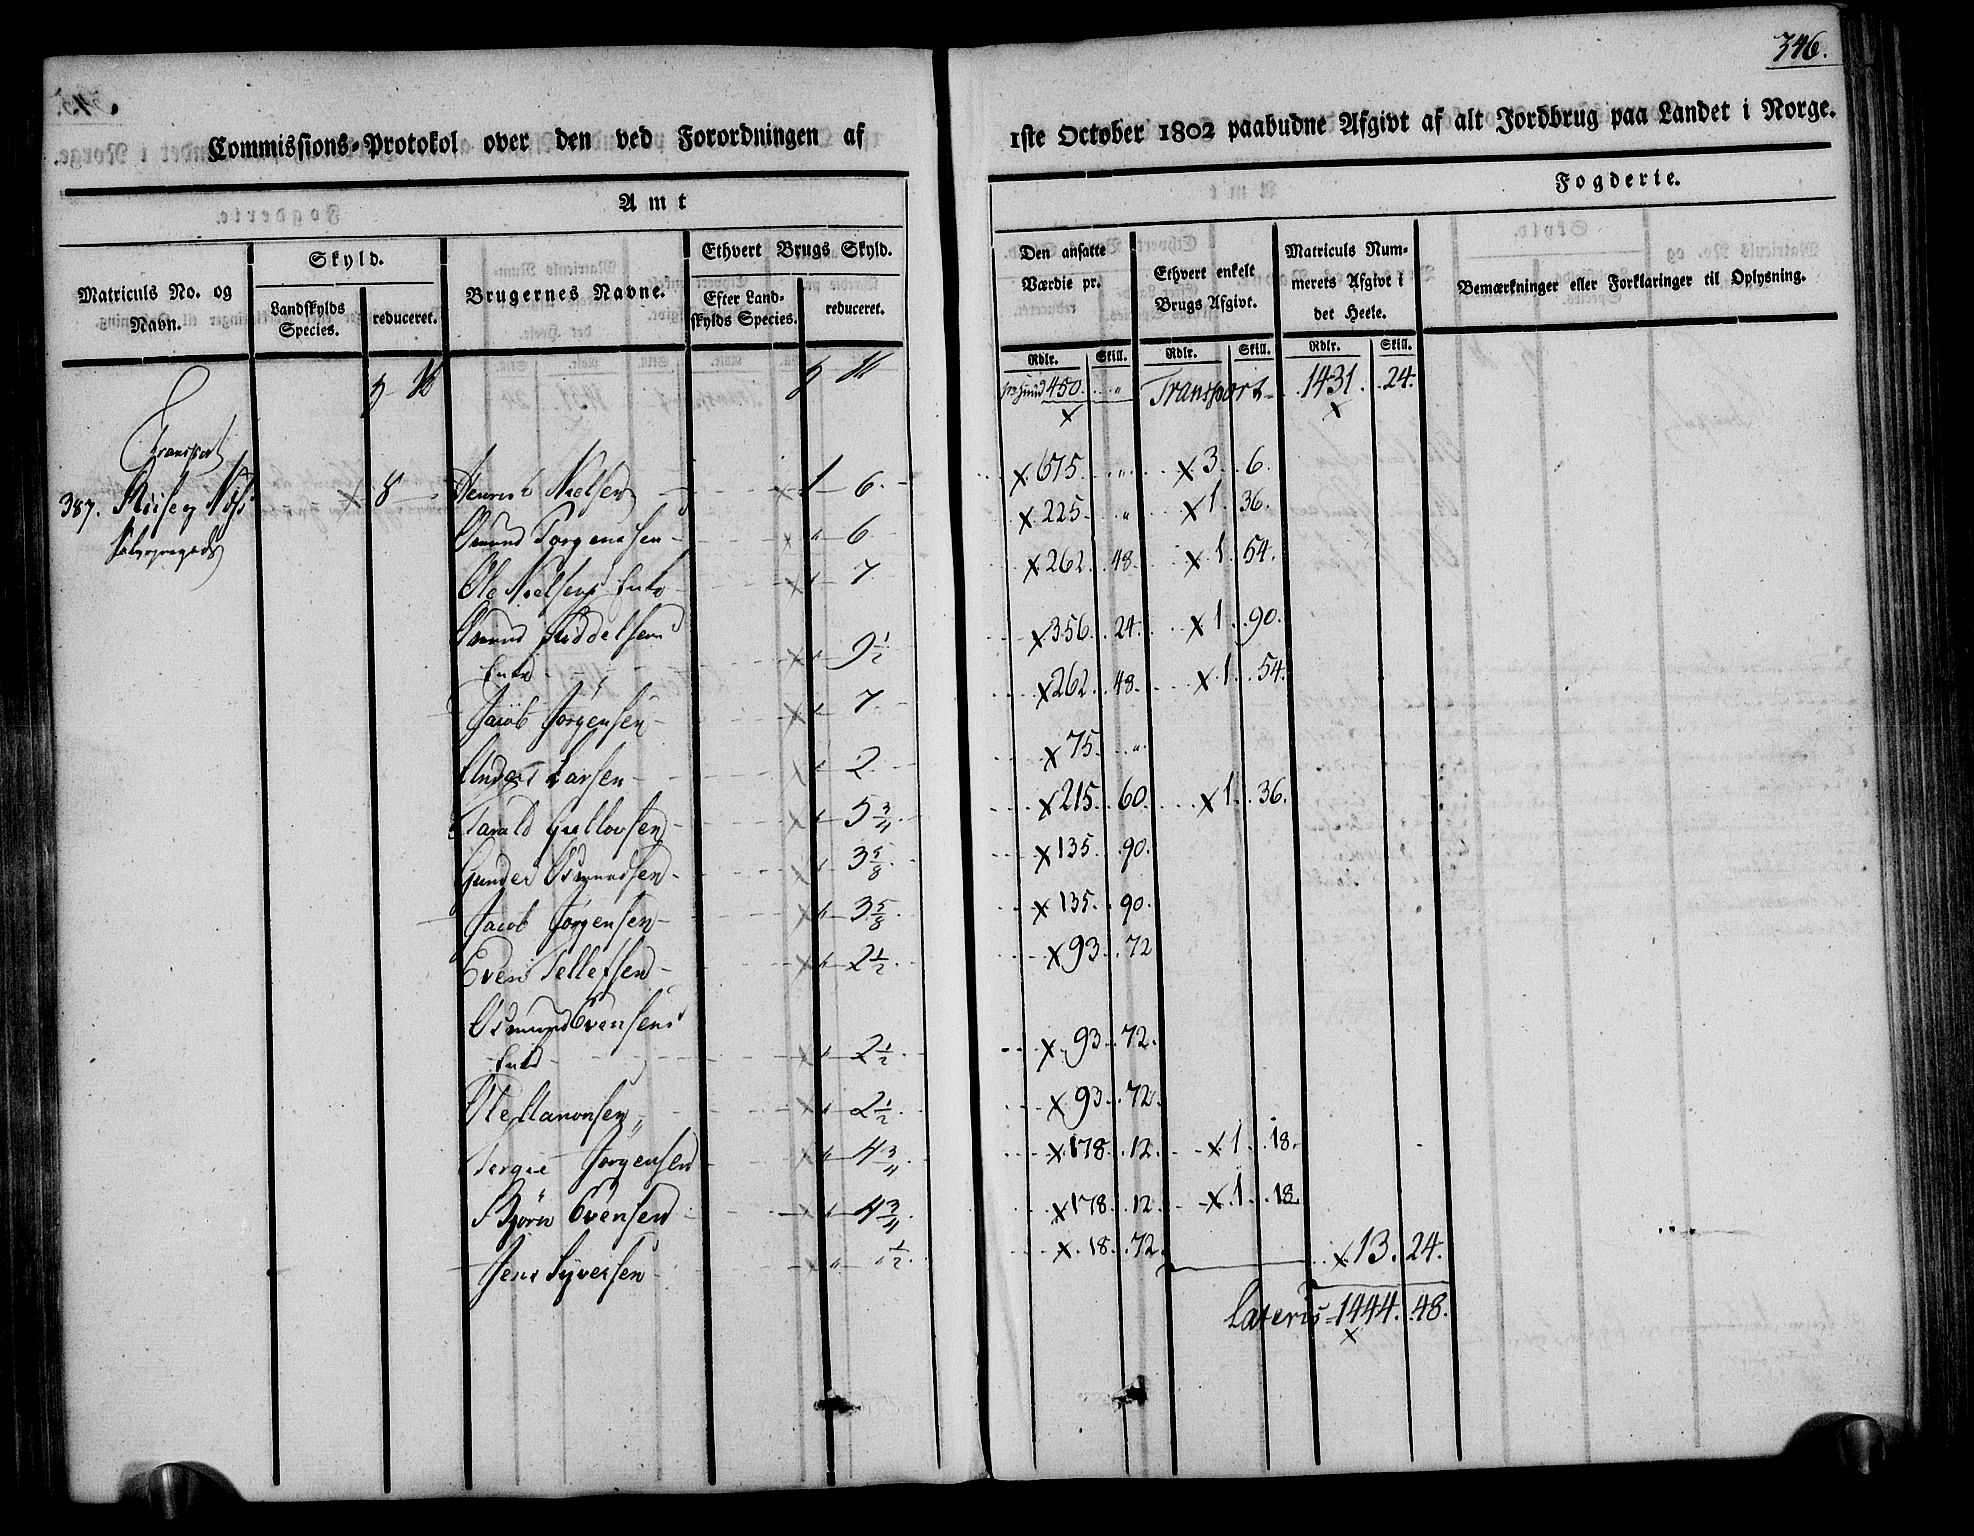 346.
Commissions-Protokol over den ved Forordningen af 1ste October 1802 paabudne Afgivt af alt Jordbrug paa Landet i Norge.
Amt Fogderie.
Matriculs No. og Navn.
Skyld.
Landskylds Species.
reduceret.
Brugernes Navne.
Ethvert Brugs Skyld.
Efter Landskylds Species.
reduceret.
Den ansatte Værdie pr.
Ethvert enkelt Brugs Afgivt.
Matriculs Nummerets Afgivt i det Heele.
Bemærkninger eller Forklaringer til Oplysning.
Rdlr. Skill. Rdlr. Skill. Rdlr. Skill.
Transport
450. " Transport 1431. 24.
387. 8 Nielsen 1 6. 675. " 3. 6.
Osmund Torgensen " 6 225. " 1. 36.
Ole Nielsens Enke " 7 262. 48. 1. 54.
Osmund
Enke " 9 1/2 356. 24. 1. 90.
Jacob Jørgensen " 7. 262. 48. 1. 54.
Anders Larsen " 2. 75. "
Tarald Gullovsen " 5 3/4 215. 60. 1. 36.
Gunder Osmundsen " 3 5/8 135. 90.
Jacob Jørgensen " 3 5/8 135. 90.
Even Tellefsen " 2 1/2 93. 72
Osmund Evensens
Enke " 2 1/2 93. 72.
Ole Aanonsen " 2 1/2 93. 72.
Tergie Jørgensen " 4 3/4 178. 12. 1. 18.
Bjørn Evensen " 4 3/4 178. 12. 1. 18.
Jens Syversen " 1/2 18. 72. 13. 24.
Lateris 1444. 48.